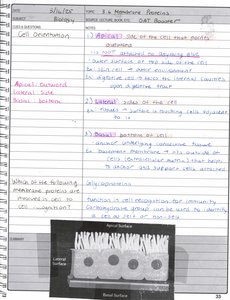 DATE 3/16/25
TOPIC 3.6 Membrane Proteins
SUBJECT Biology
SOURCE: LECTURE, BOOK, ETC. OAT Booster
CUES & QUESTIONS
NOTES
Cell Orientation
1) Apical: side of the cell that points
outwards
is "not" attached to anything else
outer surface or top side of the cell
Ex: skin → outer environment
Ex: digestive cell → faces the internal cavities
upon digestive tract
Apical: outward
Lateral: side
Basal: bottom
2) Lateral: sides of the cell
surface is touching cells adjacent
to it
3) Basal: bottom of cell
anchor underlying connective tissue
basement membrane → its outside of
cells (extracellular matrix) that helps
to anchor and support cells attached
Which of the following
membrane proteins are
involved in cell to
cell recognition?
Glycoproteins
Function is cell recognition for immunity
Carbohydrate group can be used to identify
a cell as self or non-self
SUMMARY
Apical Surface
Lateral
Surface
Basal Surface
33